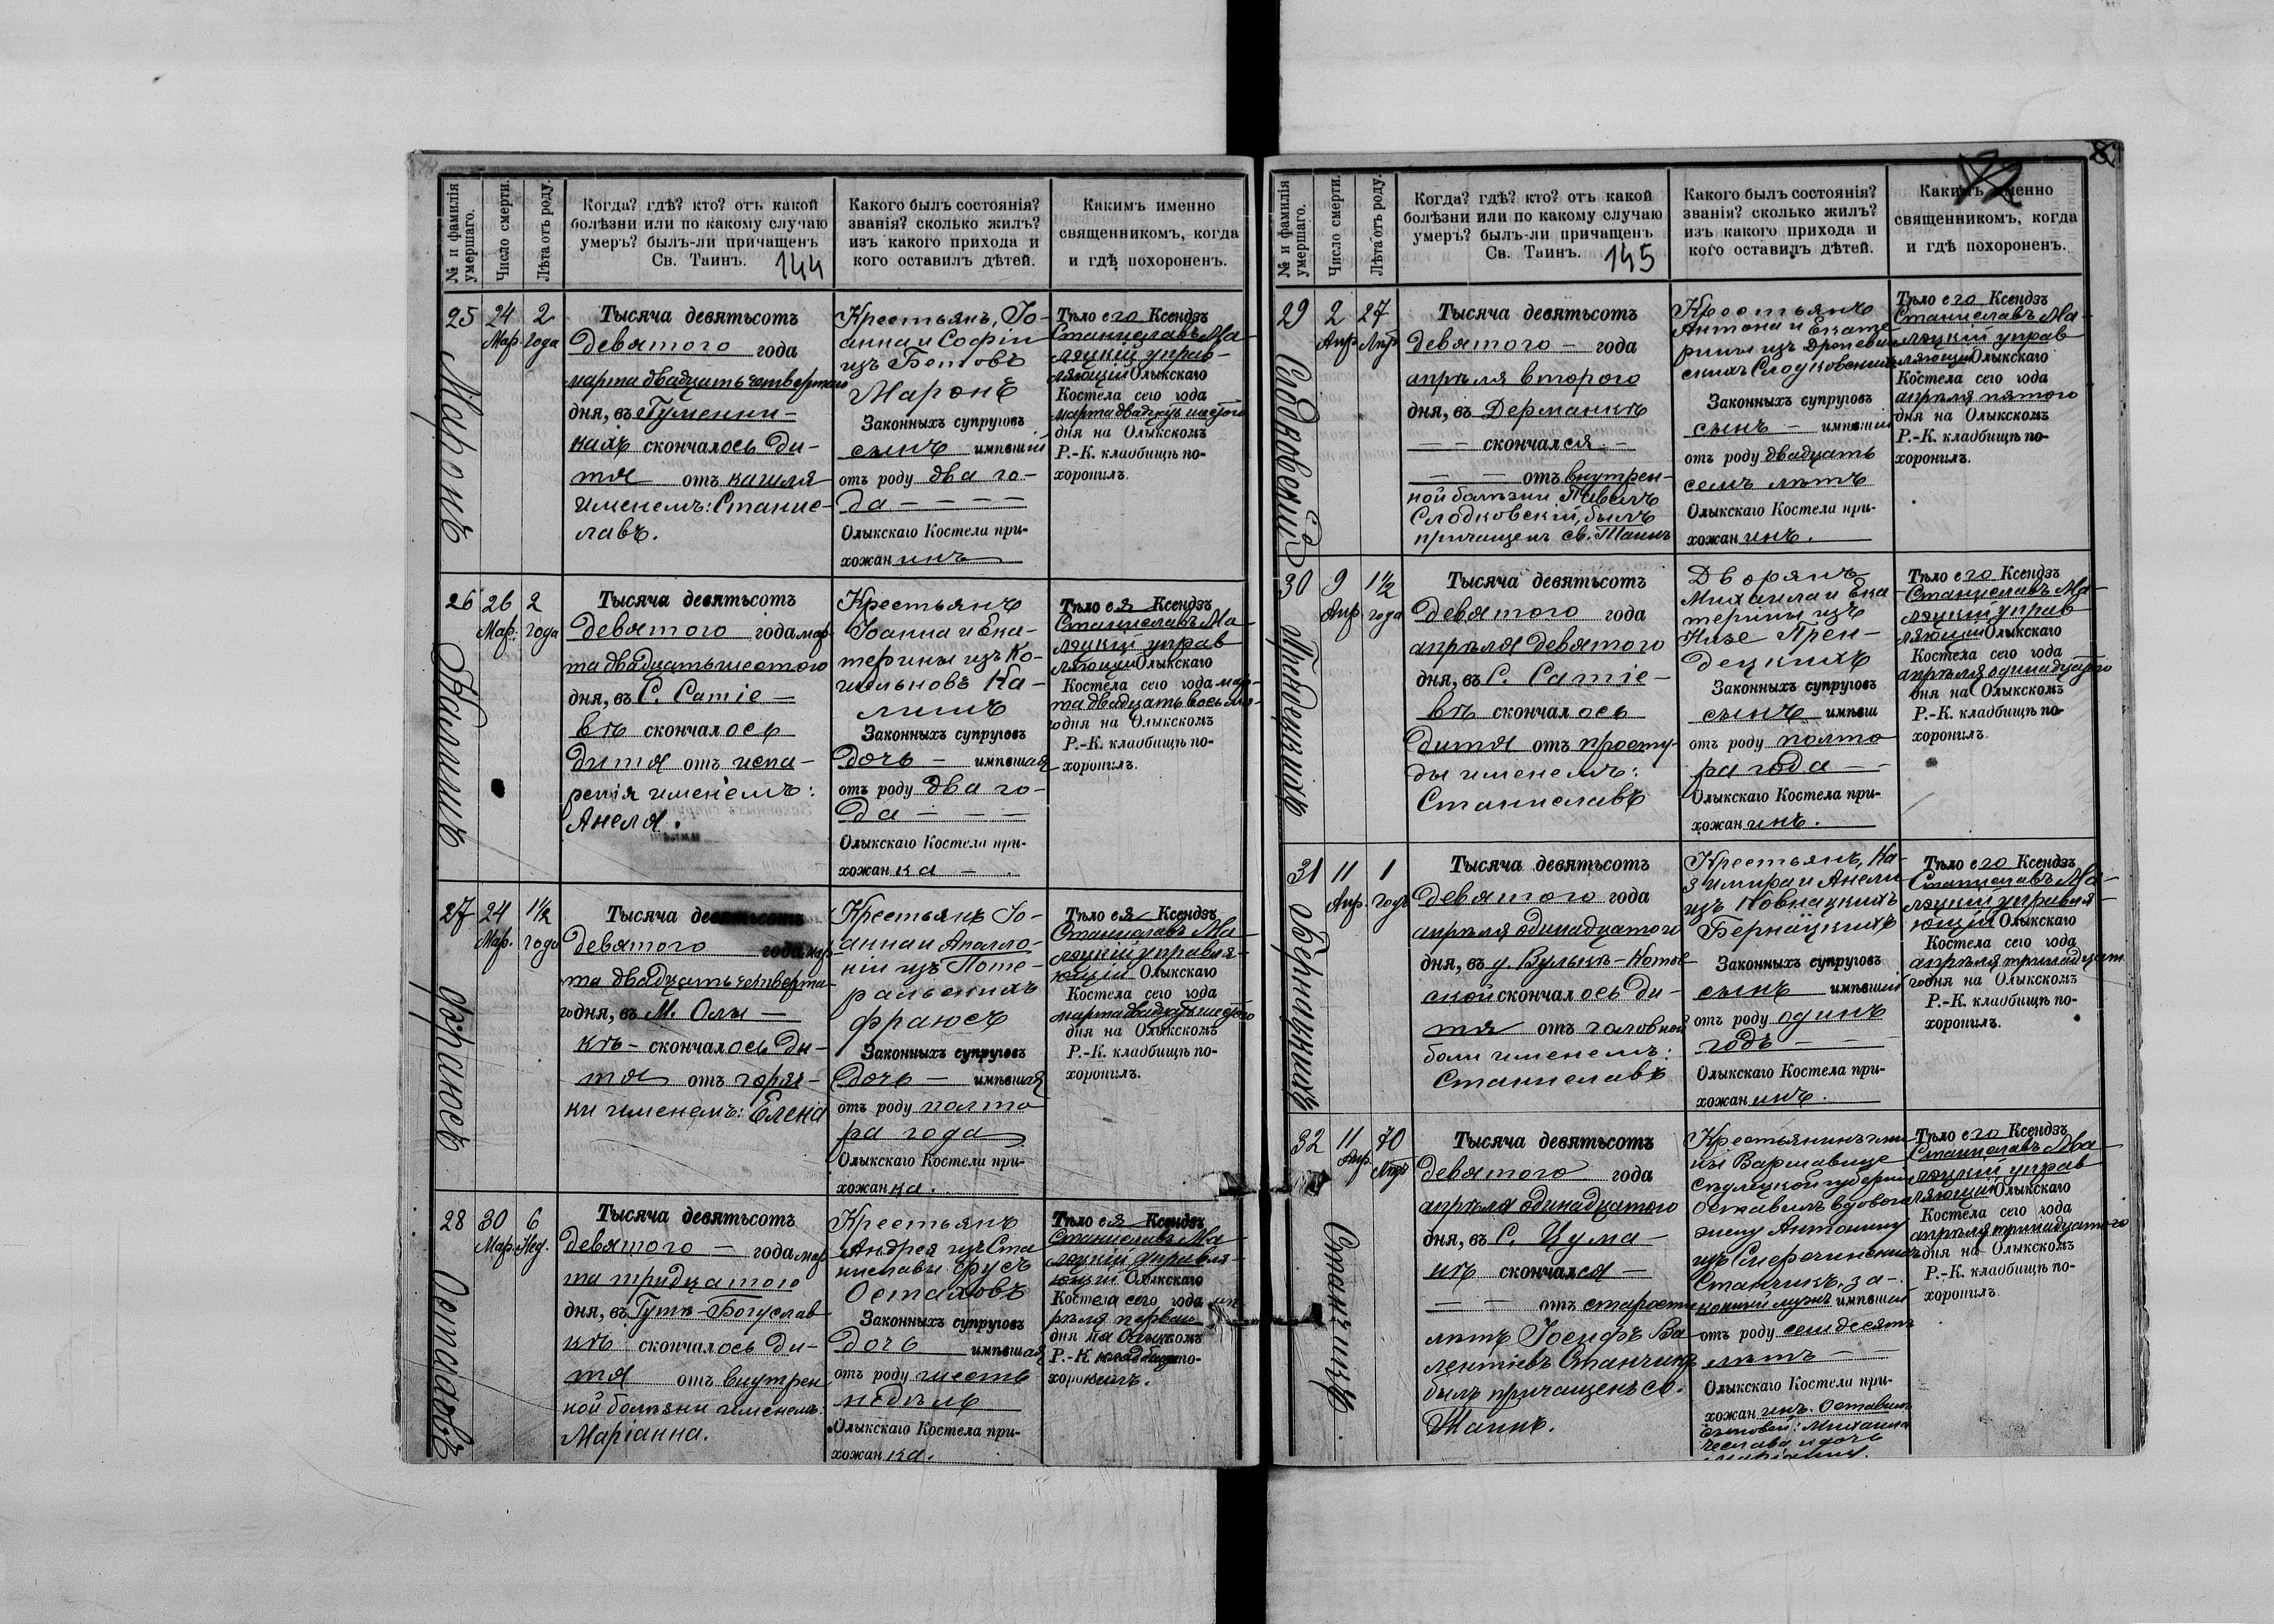 № и фамилія умершаго.
Число смерти.
Лѣта отъ роду.
Когда? гдѣ? кто? отъ какой
болѣзни или по какому случаю
умеръ? былъ-ли причащенъ
Св. Таинъ.
144
Какого былъ состоянія?
званія? сколько жилъ?
изъ какого прихода и
кого оставилъ дѣтей.
Какимъ именно
священникомъ, когда
и гдѣ похороненъ.
25
Маронъ
24
Мар.
2
года
Тысяча девятьсотъ
девятого года
марта двадцать четвертаго
дня, въ Гуменни-
кахъ скончалось ди-
тя отъ кашля
именемъ: Станис-
лавъ.
Крестьянъ, Іо-
анна и Софіи
изъ
Маронъ
Законныхъ супруговъ
сынъ имѣвшій
отъ роду два го-
да - - - -
Олыкскаго Костела при-
хожанинъ
Тѣло его Ксендзъ
Станиславъ Ма-
ляцкій управ-
ляющій Олыкскаго
Костела сего года
марта двадцать шестого
дня на Олыкскомъ
Р.-К. кладбищѣ по-
хоронилъ.
26
26
Мар.
2
года
Тысяча девятьсотъ
девятого года мар-
та двадцать шестого
дня, въ С. Сатіе-
въ скончалось
дитя отъ испа-
ренія именемъ:
Анеля.
Крестьянъ
Іоанна и Ека-
терины изъ Ко-
шельновъ Ка-
лишъ
Законныхъ супруговъ
дочь - имѣвшая
отъ роду два го-
да - - -
Олыкскаго Костела при-
хожанка - .
Тѣло ея Ксендзъ
Станиславъ Ма-
ляцкій управ
ляющій Олыкскаго
Костела сего года мар-
та двадцать вось мо-
го дня на Олыкскомъ
Р.-К. кладбищѣ по-
хоронилъ.
27
Франюсъ
24
Мар.
1½
года
Тысяча девятьсотъ
девятого года мар-
та двадцать четверта-
го дня, въ М. Олы-
кѣ - скончалось ди-
тя отъ горяч-
ки именемъ: Елена
Крестьянъ Іо-
анна и Аполло-
ніи изъ Поте-
ральскихъ
Франюсъ
Законныхъ супруговъ
дочь - имѣвшая
отъ роду полто
ра года
Олыкскаго Костела при-
хожанка.
Тѣло ея Ксендзъ
Станиславъ Ма-
ляцкій управля-
ющій Олыкскаго
Костела сего года
марта двадцать шестого
дня на Олыкскомъ
Р.-К. кладбищѣ по-
хоронилъ.
28
Остаховъ
30
Мар.
6
Нед.
Тысяча девятьсотъ
девятого - года мар-
та тридцатого
дня, въ Гутѣ-Богуслав
кѣ скончалось ди-
тя отъ внутрен
ной болѣзни именемъ:
Маріанна.
Крестьянъ
Андрея изъ Ста
ниславы Фусъ
Остаховъ
Законныхъ супруговъ
дочь имѣвшая
отъ роду шесть
недѣль
Олыкскаго Костела при-
хожанка.
Тѣло ея Ксендзъ
Станиславъ Ма
ляцкій управля-
ющій Олыкскаго
Костела сего года ап
рѣля перваго
дня на Олыкскомъ
Р.-К кладбищѣ по-
хоронилъ.
№ и фамилія умершаго.
Число смерти.
Лѣта отъ роду.
Когда? гдѣ? кто? отъ какой
болѣзни или по какому случаю
умеръ? былъ-ли причащенъ
Св. Таинъ.
145
Какого былъ состоянія?
званія? сколько жилъ?
изъ какого прихода и
кого оставилъ дѣтей.
Какимъ именно
священникомъ, когда
и гдѣ похороненъ.
29
Слодковскій
2
Апр.
27
Лѣтъ
Тысяча девятьсотъ
девятого - года
апрѣля второго
дня, въ Дерманкѣ
- - скончался -
- - отъ внутрен-
ной болѣзни Павелъ
Слодковскій, былъ
причащенъ св. Таинъ
Крестьянъ
Антона и Екате
рины изъ
Слодковскихъ
Законныхъ супруговъ
сынъ - имѣвшій
отъ роду двадцать
семъ лѣтъ
Олыкскаго Костела при-
хожанинъ.
Тѣло его Ксендзъ
Станиславъ Ма-
ляцкій управ
ляющій Олыкскаго
Костела сего года
апрѣля пятого
дня на Олыкскомъ
Р.-К. кладбищѣ по-
хоронилъ.
30
Прендецкихъ
9
Апр.
1½
года
Тысяча девятьсотъ
девятого года
апрѣля девятого
дня, въ С. Сатіе-
въ скончалось
дитя отъ просту-
ды именемъ:
Станиславъ
Дворянъ
Михаила и Ека
терины изъ
Прен-
децкихъ
Законныхъ супруговъ
сынъ имѣвш
отъ роду полто
ра года - -
Олыкскаго Костела при-
хожанинъ.
Тѣло его Ксендзъ
Станиславъ Ма-
ляцкій управ
ляющій Олыкскаго
Костела сего года
апрѣля одинадцатого
дня на Олыкскомъ
Р.-К. кладбищѣ по-
хоронилъ.
31
Берняцкихъ
11
Апр.
1
годъ
Тысяча девятьсотъ
девятого года
апрѣля одинадцатого
дня, въ д. Вулькѣ-Котов
ской скончалось ди-
тя отъ головной
боли именемъ:
Станиславъ
Крестьянъ, Ка-
зимира и Анели
изъ Новнацкихъ
Берняцкихъ
Законныхъ супруговъ
сынъ имѣвшій
отъ роду одинъ
годъ - -
Олыкскаго Костела при-
хожанинъ.
Тѣло его Ксендзъ
Станиславъ Ма-
ляцкій управля-
ющій Олыкскаго
Костела сего года
апрѣля тринадцат
го дня на Олыкскомъ
Р.-К. кладбищѣ по-
хоронилъ.
32
Станчикъ
11
Апр.
70
Лѣтъ
Тысяча девятьсотъ
девятого года
апрѣля одинадцатого
дня, въ С. Цума-
нѣ скончался -
- - отъ старости
лѣтъ Іосифъ Ва-
лентіевъ Станчикъ
былъ причащенъ св.
Таинъ.
Крестьянинъ гми
ны Варшавице
Сѣдлецкой губерніи
оставилъ вдовою
жену Антонину
изъ
Станчикъ, за-
конный мужъ имѣвшій
отъ роду семдесятъ
лѣтъ - -
Олыкскаго Костела при-
хожанинъ. Оставилъ
сыновей: Михаила
Чеслава и дочь
Тѣло его Ксендзъ
Станиславъ Ма-
ляцкій управ
ляющій Олыкскаго
Костела сего года
апрѣля тринадцатого
дня на Олыкскомъ
Р.-К. кладбищѣ по-
хоронилъ.